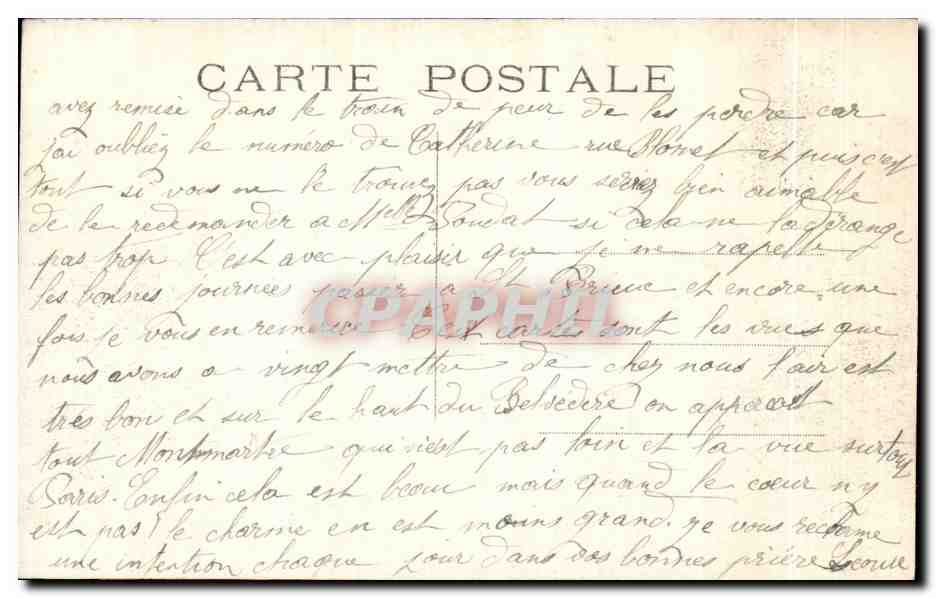 CARTE POSTALE
avez remise dans le train de peur de les perdre car
j'ai oubliez le numéro de Catherine rue Blomet et puis c'est
tout si vous ne le trouvez pas vous serez bien aimable
de le redemander a Melle Boudat si cela ne la dérange
pas trop C'est avec plaisir que je me rapelle
les bonnes journées passer a St Brieuc et encore une
fois je vous en remercie cartes sont les vues que
nous avons a vingt mettre de chez nous l'air est
très bon et sur le haut du Belvédère on apperçoit
tout Montmartre qui n'est pas loin et la vue sur tout
Paris. Enfin cela est beau mais quand le cœur n'y
est pas! le charme en est moins grand. je vous réclame
une intention chaque jour dans vos bonnes prière
CPAPHIL